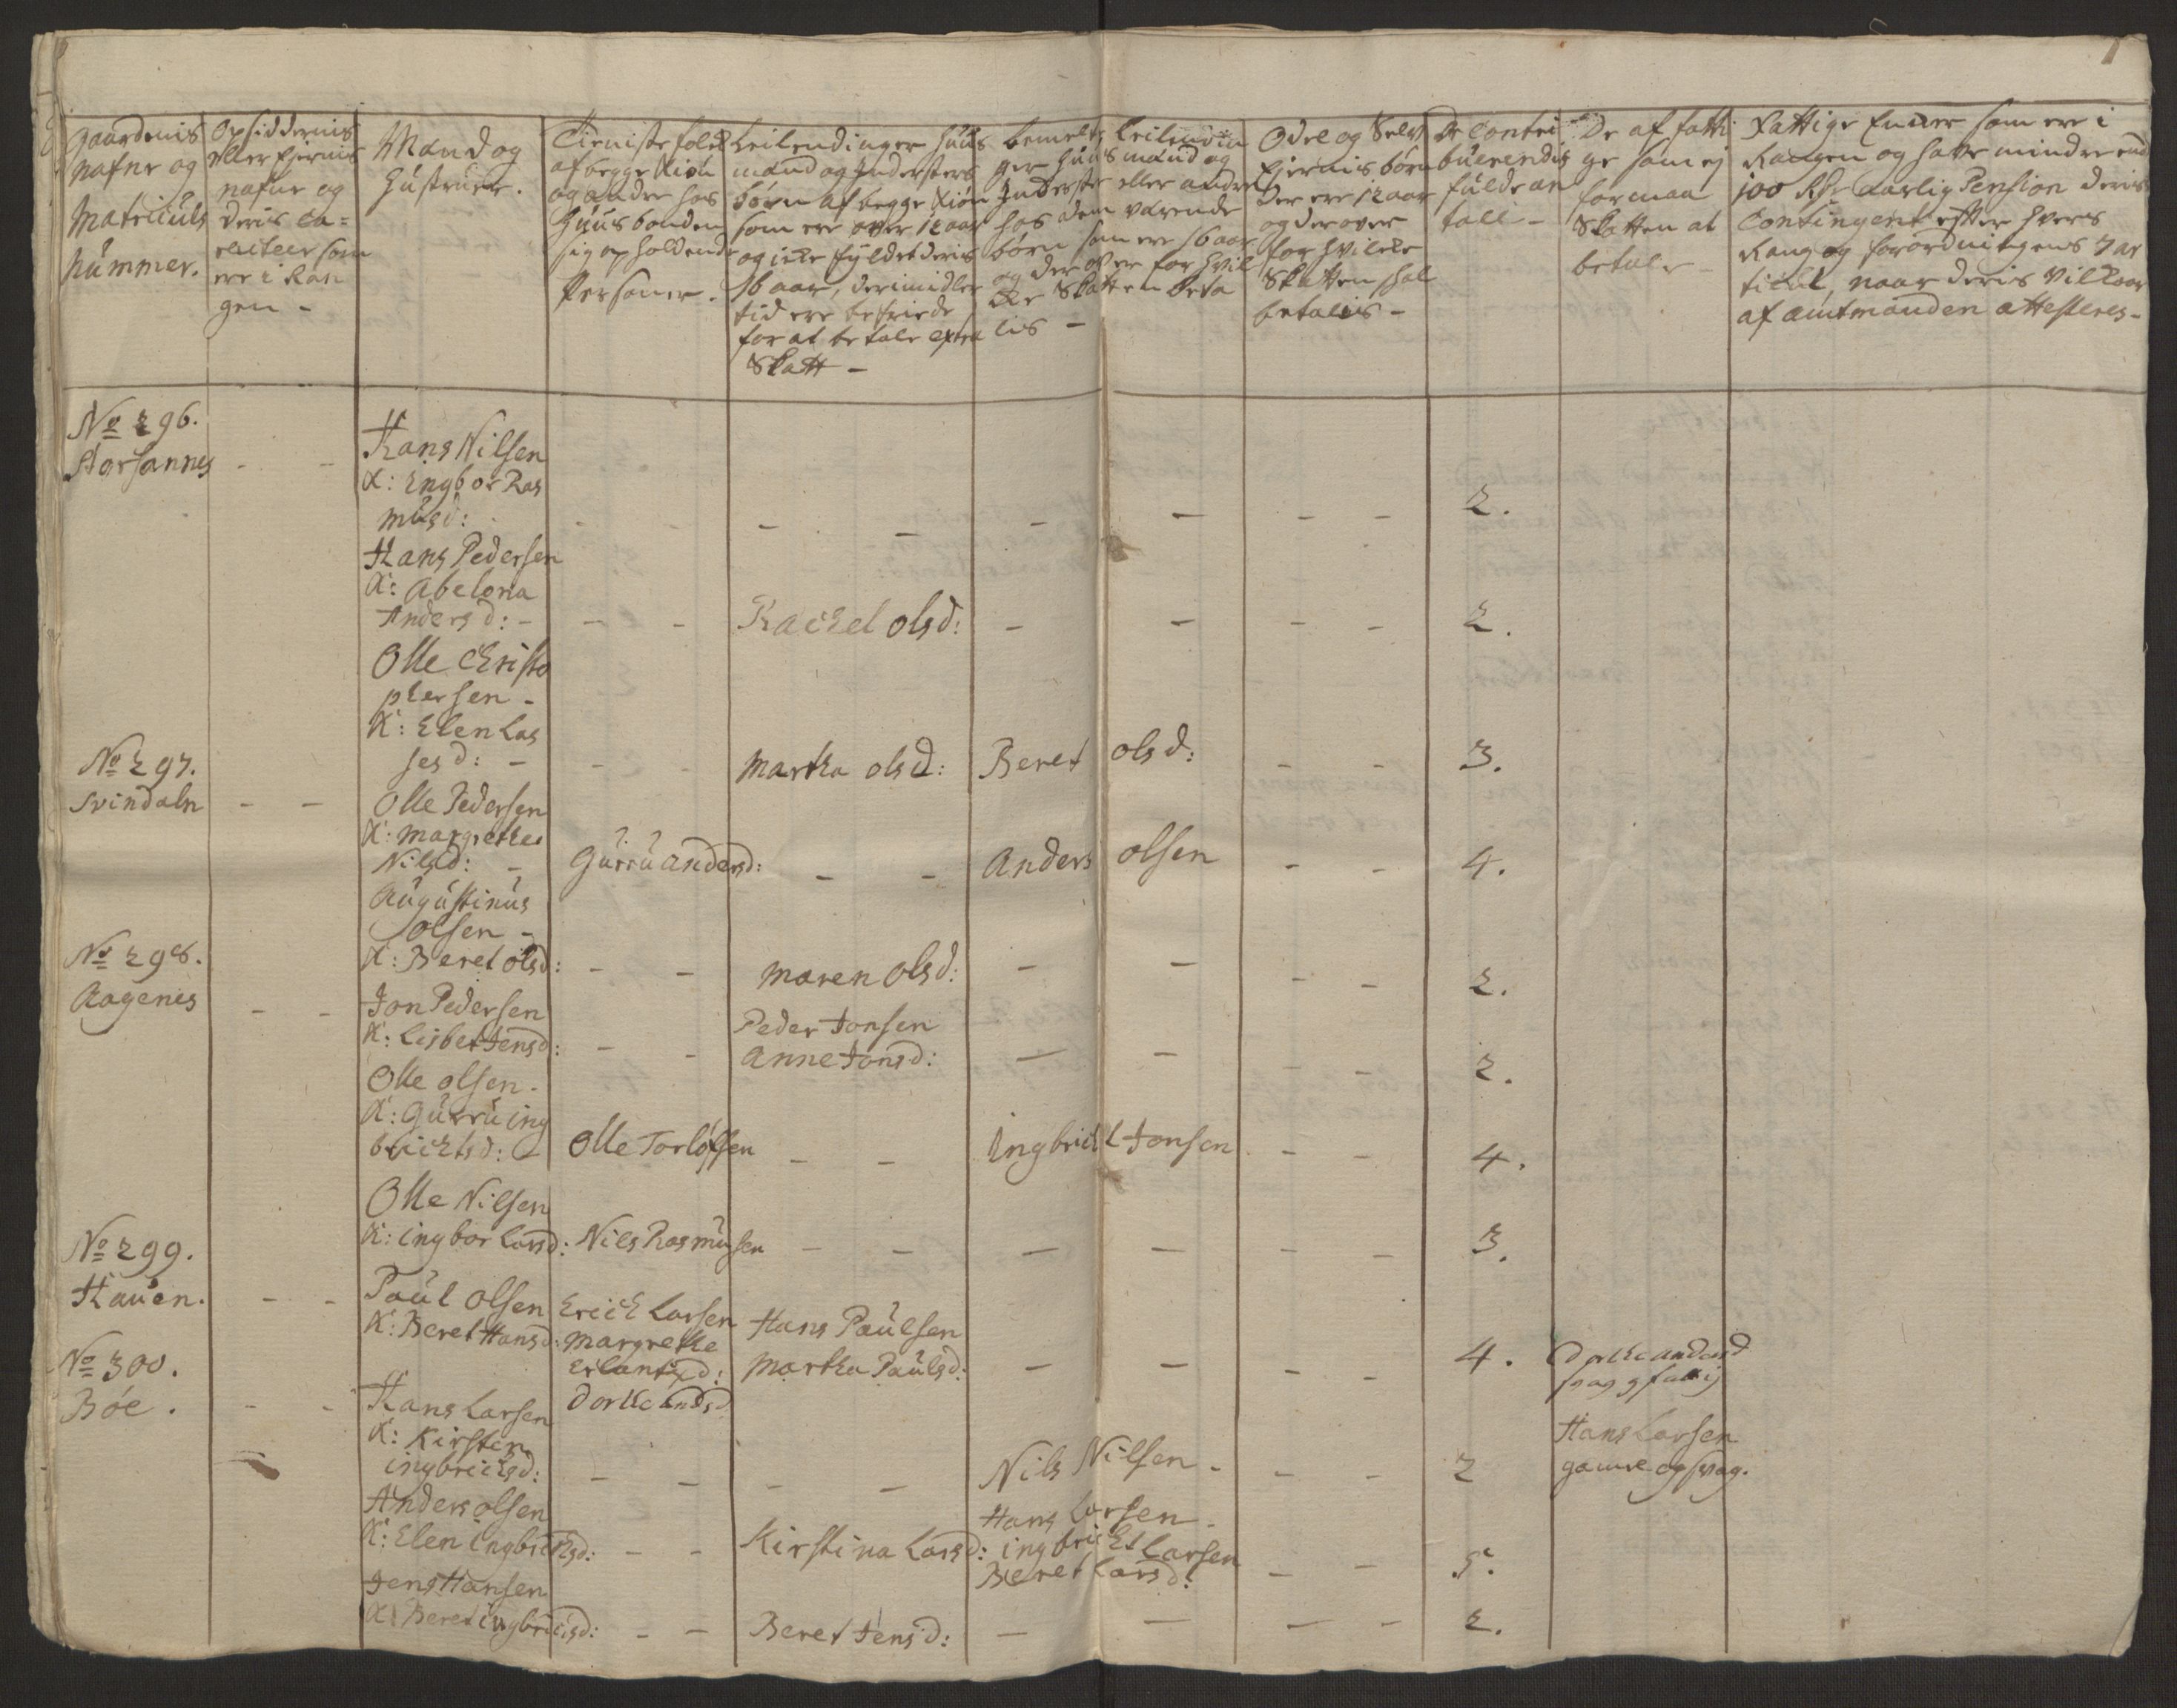 Gaardenis
nafne og
Matriculs
Nummer.
Opsiddernis
eller Ejernis
nafne og
deris Ca=
racteer som
ere i Ran
gen -
Mand og
Hustruer.
Tieniste folck
af begge Kiön
og andre hos
Huusbonden
sig opholdende
Personer.
Leilendinger Huus
mænd og Indersters
börn af begge Kiön
som ere over 12 aar
og icke fyldet deris
16 aar, derimidler
tid ere befriede
for at betale extra
Skatt -
bemelte Leilendin
ger Huusmænd og
Inderster eller andre
hos dem værende
börn som ere 16 aar
og der over for hvil
cke Skatten beta
lis -
Odel og Selv
Ejernis börn
der ere 12 aar
og derover
for hvilcke
Skatten skal
betalis -
De Contri
buerendis
fulde an
tall -
De af fatti
ge som ej
formaa
Skatten at
betale -
Fattige Encker som ere i
Rangen og have mindre end
100 Rdr aarlig Pension deris
Contingent efter hvers
Rang og forordningens 7 ar
ticul, naar deris Vilkaar
af amtmanden attesteres -
No 296.
Storsannes - -
Hans Nilsen
K: Ingbor Ras
musd: - - - - - - - - 2.
Hans Pedersen
K: Abelona
Andersd: - - - Rachel olsd: - - - - 2.
Olle Christo
phersen -
K: Elen Las
sesd: - - - Martha olsd: Beret olsd: - - 3.
No 297.
Svindaln - -
Olle Pedersen
K: Margrethe
Nilsd: - Gurru andersd: - - Anders olsen - - 4.
Augustinus
olsen -
K: Beret olsd: - - Maren olsd: - - - - 2.
No 298.
Aagenes - -
Jon Pedersen
K: Lisbet Jensd: - -
Peder Jonsen
Anne Jonsd: - - - - 2.
Olle olsen -
K: Gurru ing
brichtsd: - Olle Torlofsen - - Ingbricht Jonsen - - 4.
Olle Nilsen
K: ingbor Larsd: Nils Rasmusen - - - - - - 3.
No 299.
Hauen. - -
Paul olsen
K: Beret Hansd:
Erich Larsen
Margrethe
Erlantsd:
Dorthe andsd
Hans Paulsen
Martha Paulsd: - - - - 4.
Dorthe andersd
svag g fattig
No 300.
Böe. - -
Hans Larsen
K: Kirsten
ingbrichsd: - - - - Nils Nilsen - - - 2
Hans Larsen
gamel og svag.
Anders olsen
K: Elen ingbrichsd: - - Kirstina Larsd:
Hans Larsen -
ingbricht Larsen
Beret Larsd: - - 5.
Jens Hansen
K: Beret ingbricisd: - - Beret Jensd: - - - - 2.